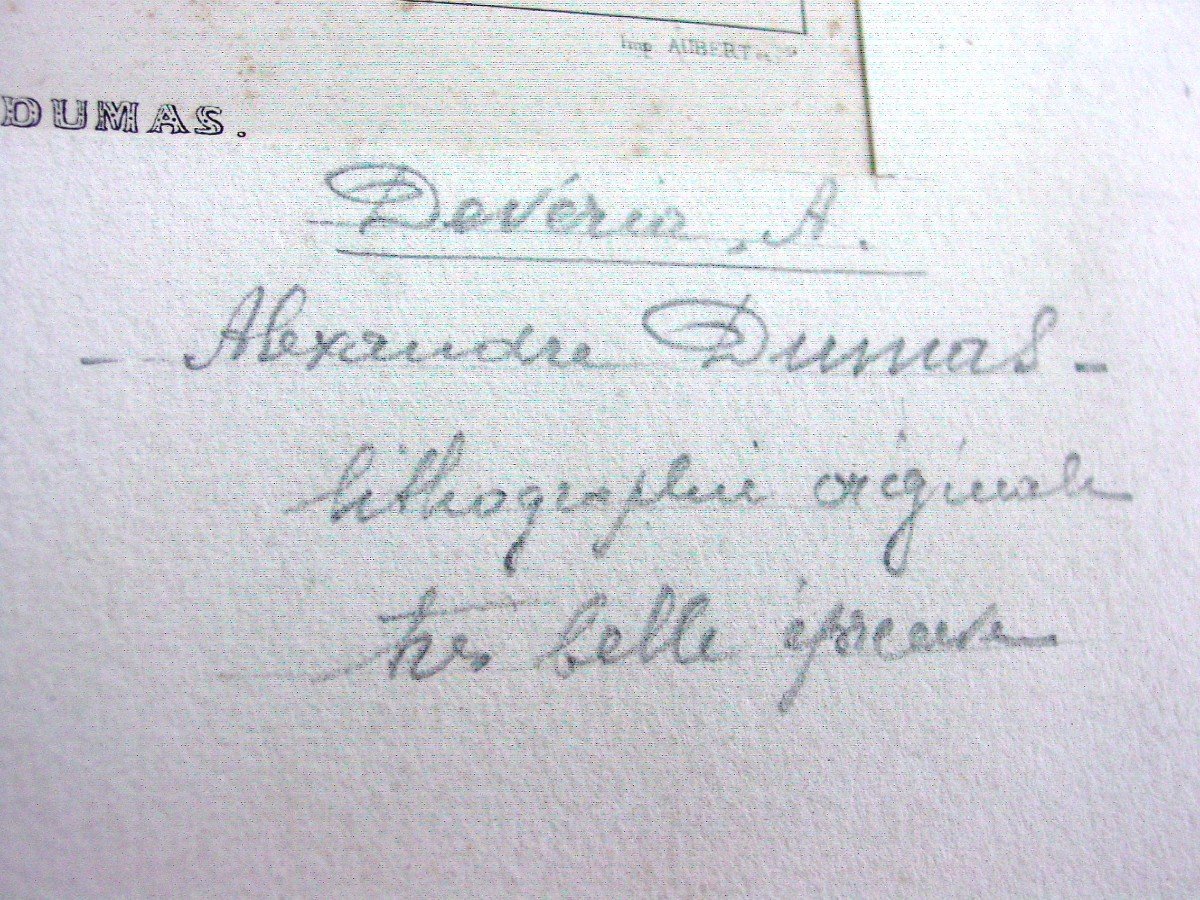 Imp AUBERT
DUMAS.
Devéria, A.
- Alexandre Dumas -
lithographie originale
très belle épreuve